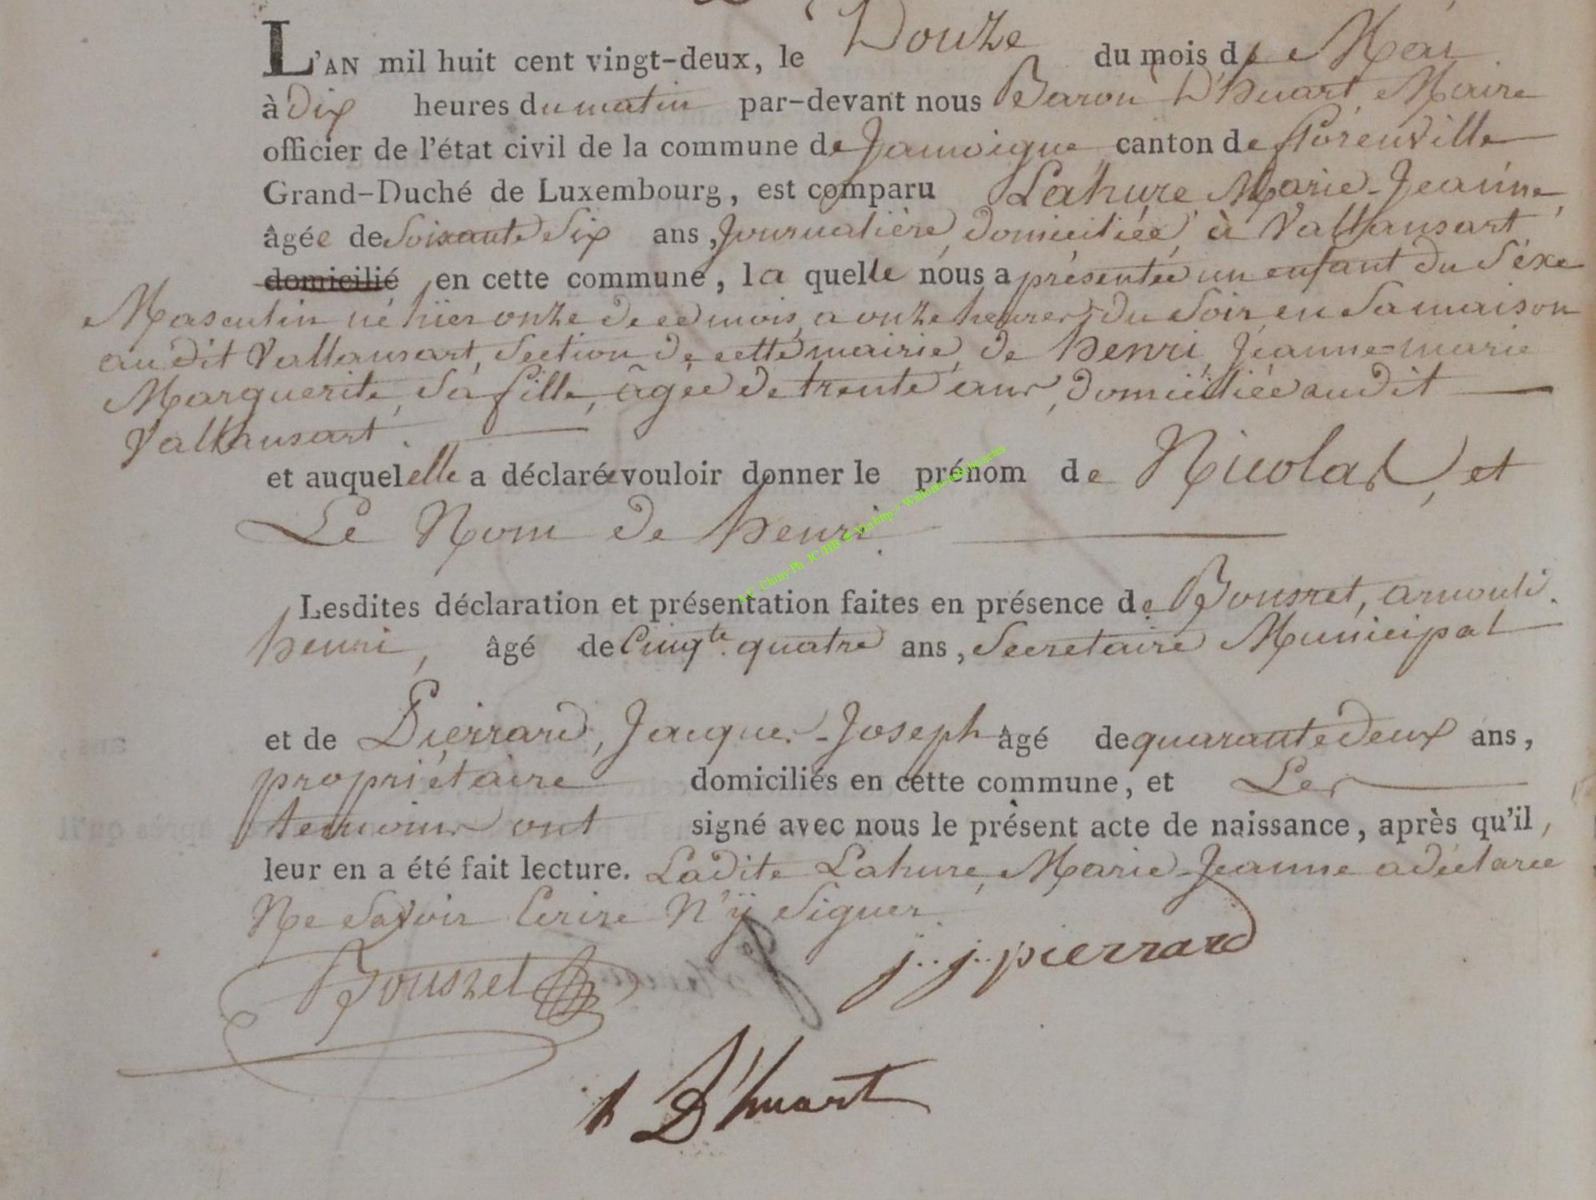 L'AN mil huit cent vingt-deux, le Douze du mois de Mai
à Dix heures du matin par-devant nous Baron D'huart, Maire
officier de l'état civil de la commune de Jamoigne canton de florenville
Grand-Duché de Luxembourg, est comparu Lahure, Marie-Jeanne,
âgée de Soixante Six ans, Journalière, domiciliée, à Vallansart,
domicilié en cette commune, la quelle nous a présentée un enfant du Séxe
Masculin né hïer onze de ce mois, a onze heures du Soir, en Sa maison
audit Vallansart, Section de cette mairie, de henri, Jeanne-marie
Marguerite, Sa fille, âgée de trente ans, domiciliée audit
Vallansart.
et auquel elle a déclarée vouloir donner le prénom de Nicolas, et
Le Nom de henri.
Lesdites déclaration et présentation faites en présence de Bousret, arnould.
henri, âgé de Cinqte. quatre ans, Secretaire Municipal
et de Pierrard, Jacques-Joseph âgé de quarante deux ans,
propriétaire domiciliés en cette commune, et Les
temoins ont signé avec nous le présent acte de naissance, après qu'il
leur en a été fait lecture. Ladite Lahure, Marie-Jeanne a déclarée
Ne Savoir Ecrire N'ÿ Signer.
Bousret
j.. j.. pierrard
D'huart